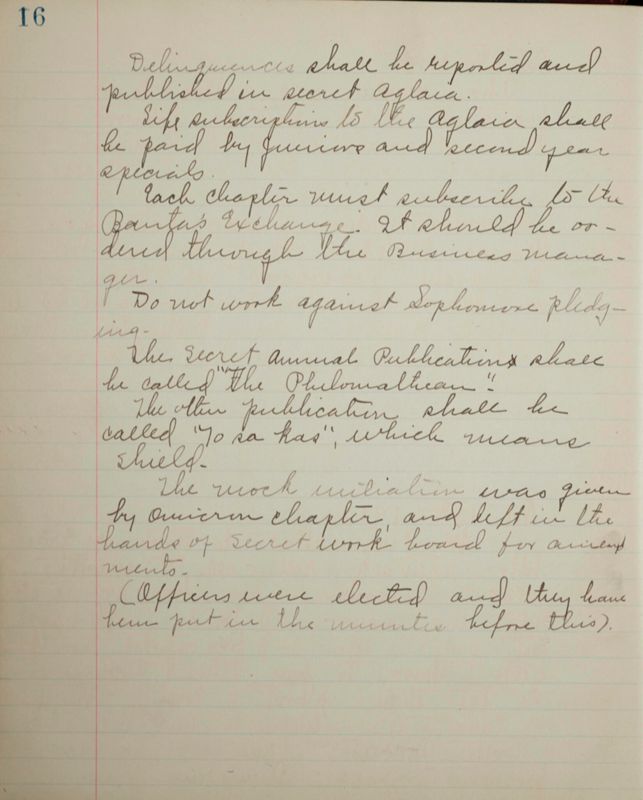 16
Delinquences shall be reported and
published in secret Aglaia.
Life subscriptions to the Aglaia shall
be paid by Juniors and second year
specials.
Each chapter must subscribe to the
Banta's Exchange. It should be or-
dered through the Business mana-
ger.
Do not work against Sophomore pledg-
ing.
The Secret Annual Publication shall
be called "The Philomathean".
The other publication shall be
called "To sa kas", which means
shield.
The mock initiation was given
by Omicron chapter, and left in the
hands of Secret work board for amend
ments.
(Officers were elected and they have
been put in the minutes before this).